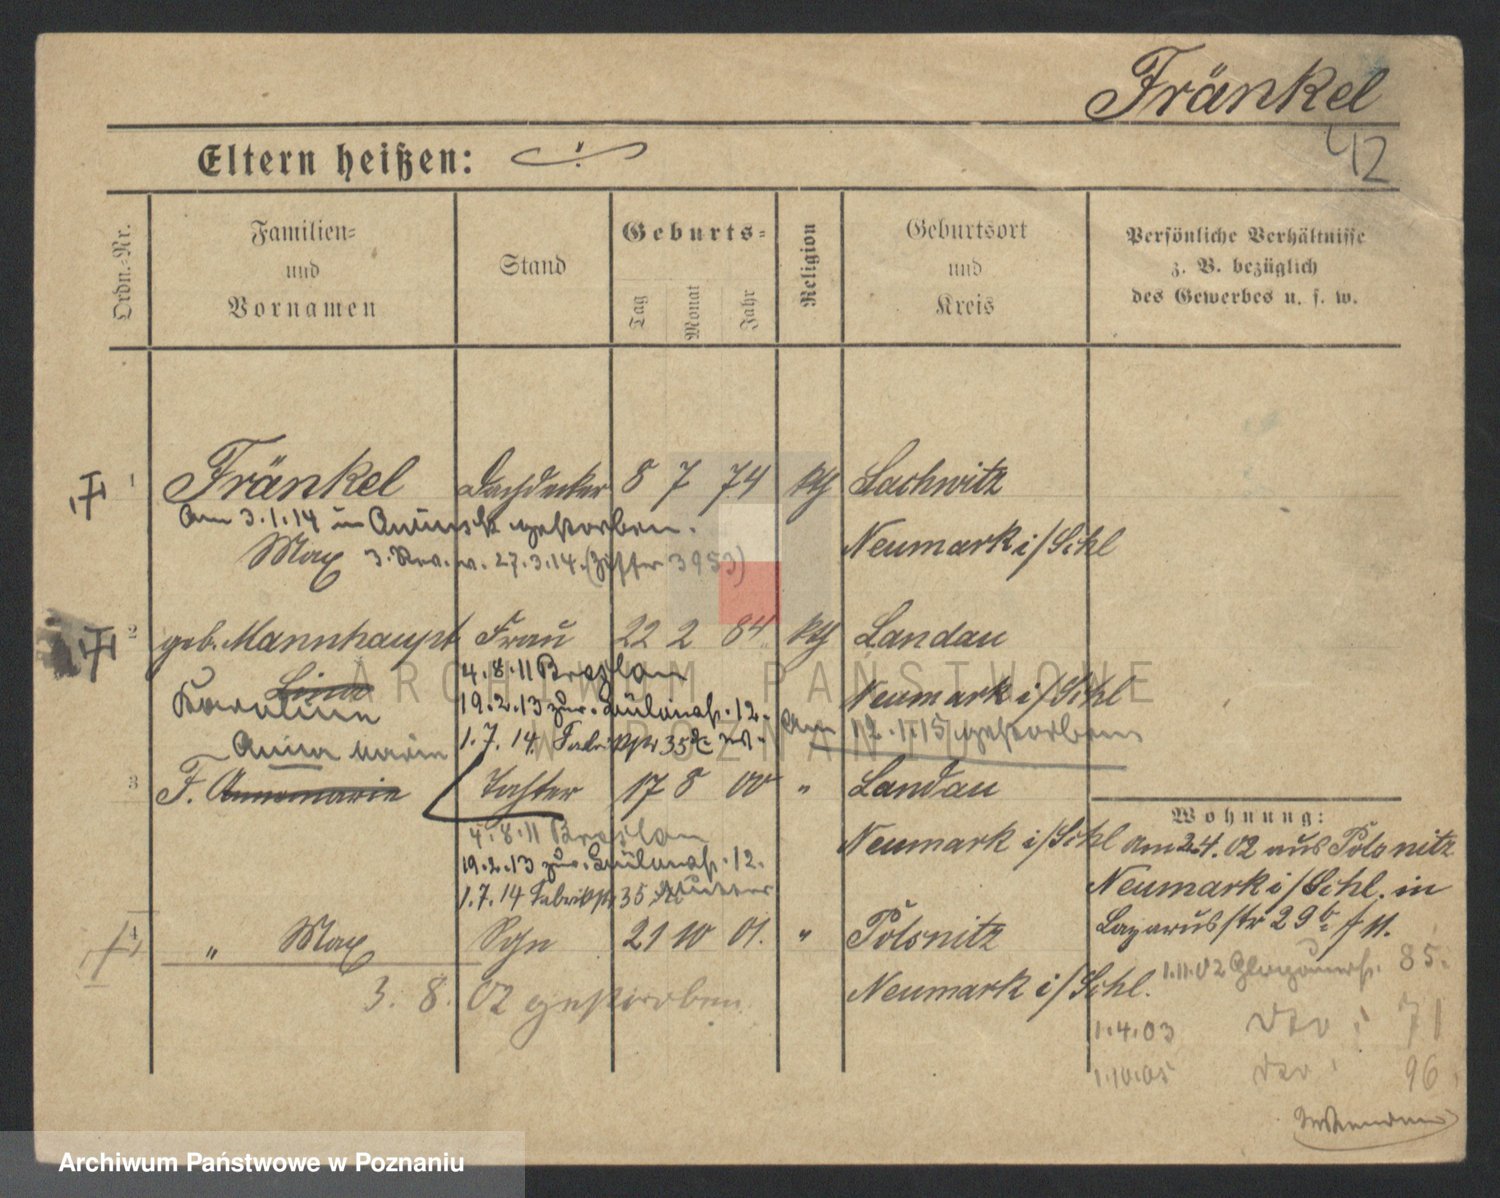 Fränkel
42
Eltern heißen:
Ordn.-Nr.
Familien-
und
Vornamen
Stand
Geburts-
Tag
Monat
Jahr
Religion
Geburtsort
und
Kreis
Persönliche Verhältnisse
z. B. bezüglich
des Gewerbes u. s. w.
1 Fränkel Dachdecker 8 7 74 kth Lachwitz
am 3.1.14 in gestorben.
Max 3. Rev. v. 27.3.14. (Ziffer 3953) Neumark i/Schl
2 geb. Mannhaupt Frau 22 2 84 kth Landau
Lina 4.8.11 Breslau Neumark i/Schl
Karoline 19.2.13 zur. 12.
1.7.14. 35 am 12.1.15 gestorben
Anna Maria
3 F. Annemarie Tochter 17 8 00 " Landau
4.8.11 Breslau Neumark i/Schl
19.2.13 zur. 12.
1.7.14 35 Mutter
4 " Max Sohn 21 10 01. " Polsnitz
3. 8. 02 gestorben Neumark i/Schl.
Wohnung:
am 24.02 aus Polsnitz
Neumark i/Schl. in
Lazarusstr 29b
1.11.02 Glogauerst. 85.
1.4.03 dto 71
1.10.05 dto 96
Wenden
ARCHIWUM PAŃSTWOWE
W POZNANIU
Archiwum Państwowe w Poznaniu